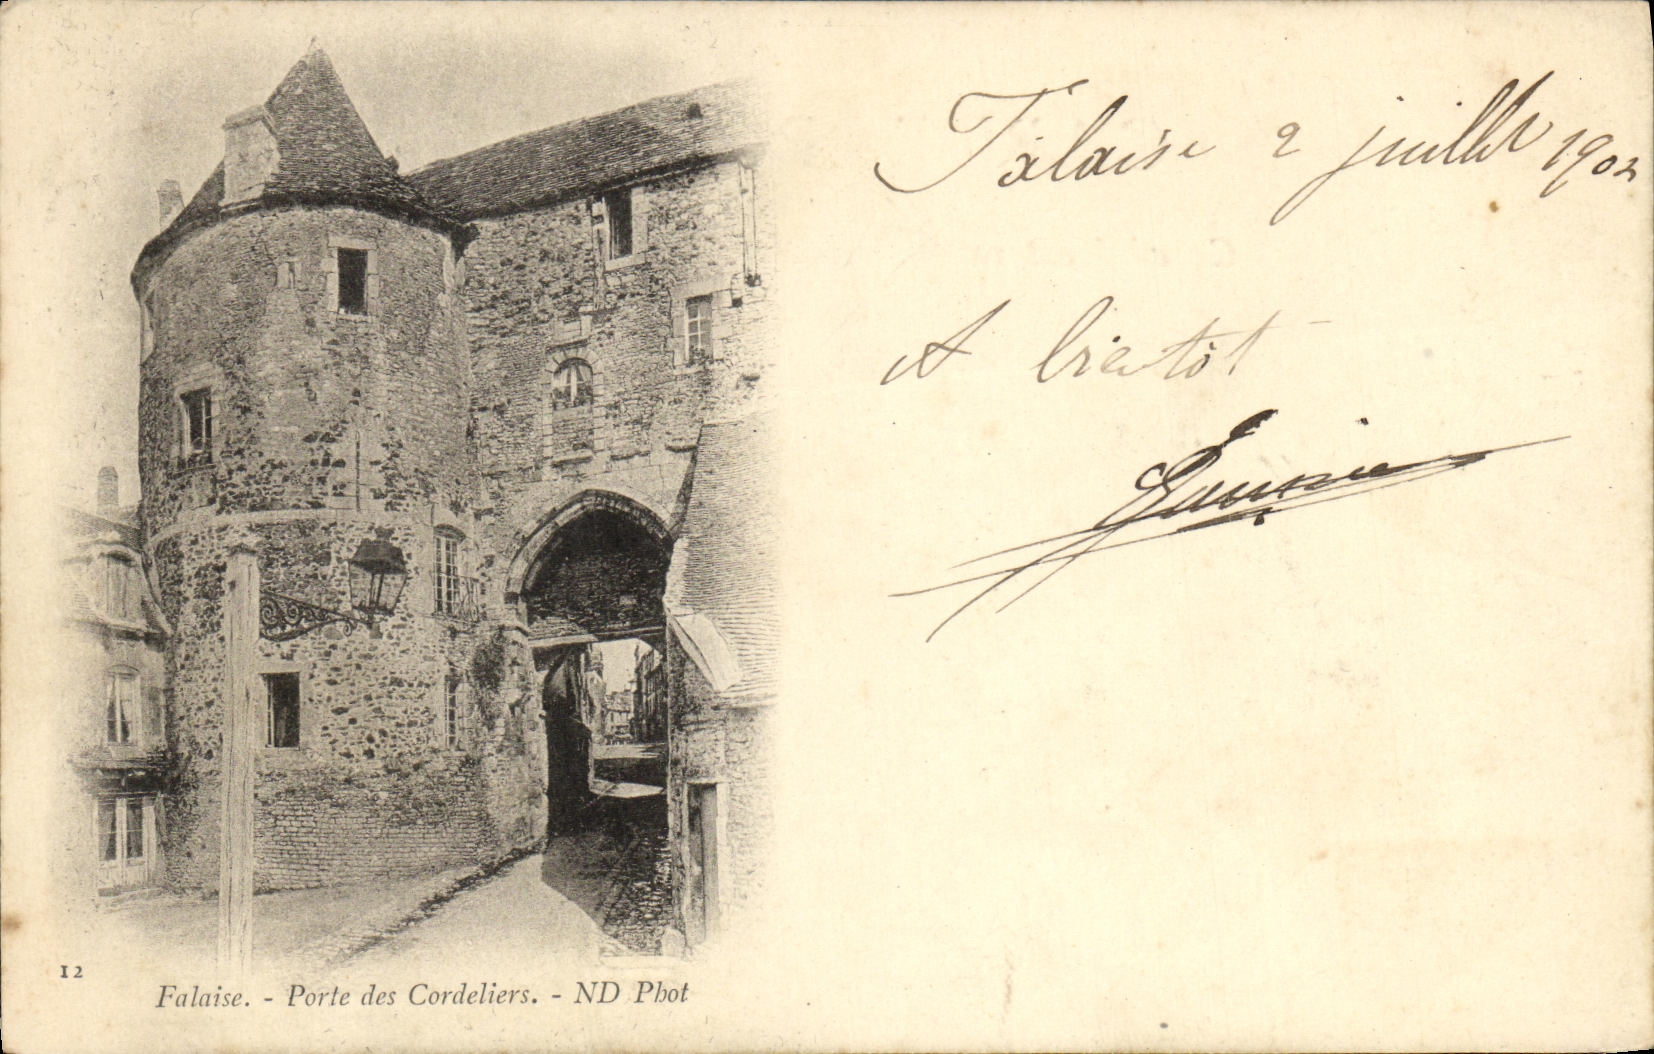 Falaise 2 juillet 1902
A bientôt
12
Falaise. - Porte des Cordeliers. - ND Phot